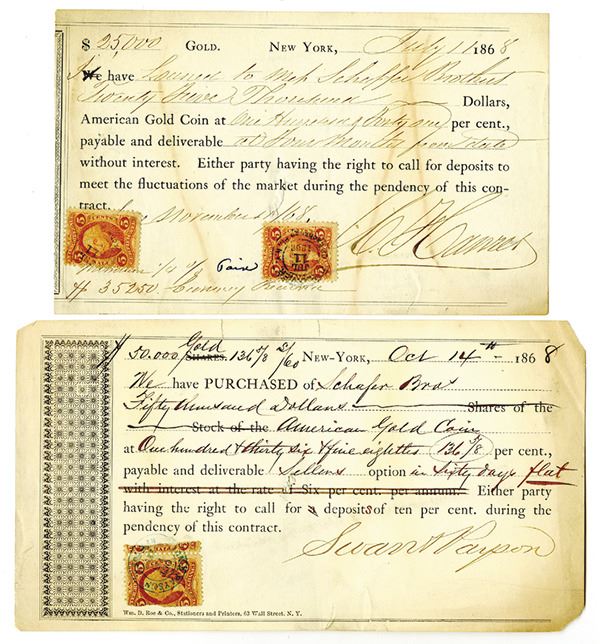 $ 25,000 GOLD. NEW YORK, July 11 1868
We have Loaned to Mess Schaffer Brothers
Twenty Five Thousand Dollars,
American Gold Coin at One Hundred & Forty one per cent.,
payable and deliverable at Four Months from date
without interest. Either party having the right to call for deposits to
meet the fluctuations of the market during the pendency of this con-
tract.
November 68.
5 CENTS 5
5 5
JUL 11 1868
Paid
$ 35250. Currency
$ 50.000 Gold SHARES. 136 5/8 S/60 NEW-YORK, Oct 14th 1868
We have PURCHASED of Schafer Bros
Fifty thousand Dollars Shares of the
Stock of the American Gold Coin
at One hundred & thirty six & five eighths (136 5/8) per cent.,
payable and deliverable Sellers option in Sixty days flat
with interest at the rate of Six per cent. per annum. Either party
having the right to call for a deposits of ten per cent. during the
pendency of this contract.
Swan & Payson
5 5
Wm. D. Roe & Co., Stationers and Printers, 63 Wall Street. N. Y.